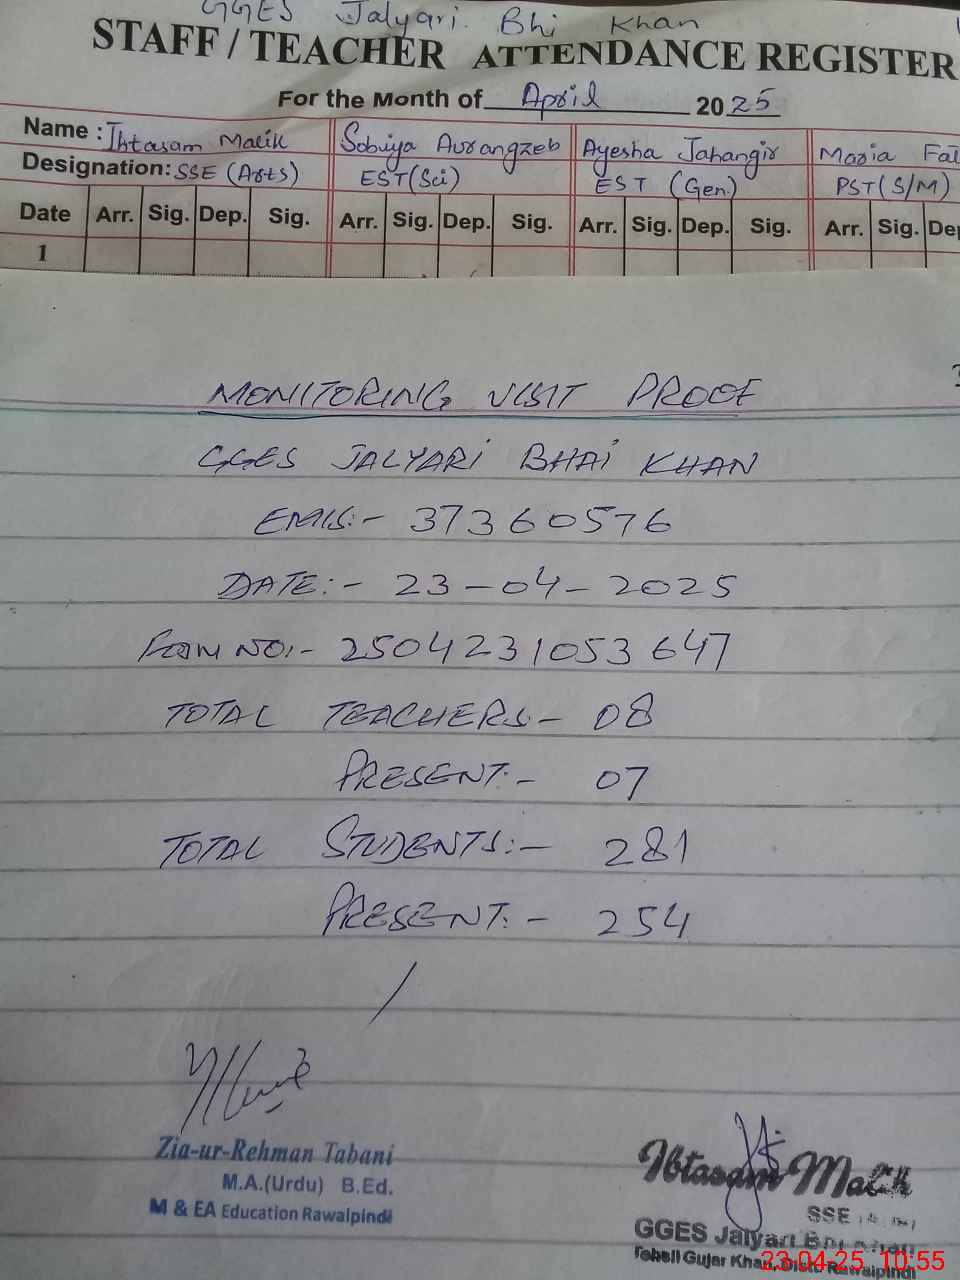 GGES Jalyari. Bhi Khan
STAFF / TEACHER ATTENDANCE REGISTER
For the Month of April 2025
Name : Ibtasam Malik Sobiya Aurangzeb Ayesha Jahangir Maria
Designation: SSE (Arts) EST(Sci) EST (Gen) PST(S/M)
Date Arr. Sig. Dep. Sig. Arr. Sig. Dep. Sig. Arr. Sig. Dep. Sig. Arr. Sig.
1
MONITORING VISIT PROOF
GGES JALYARI BHAI KHAN
EMIS:- 37360576
DATE:- 23-04-2025
FORM NO:- 2504231053647
TOTAL TEACHERS:- 08
PRESENT:- 07
TOTAL STUDENTS:- 281
PRESENT:- 254
Zia-ur-Rehman Tabani
M.A.(Urdu) B.Ed.
M & EA Education Rawalpindi
Ibtasam Malik
SSE
GGES Jalyari Bhi Khan
Tehsil Gujar Khan, Distt: Rawalpindi
23-04-25 10:55